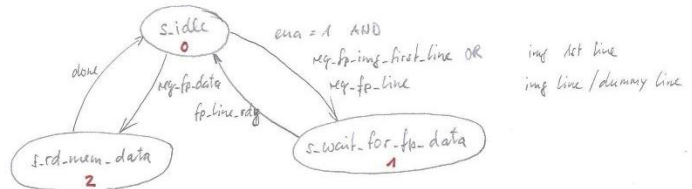 s_idle
0
ena = 1 AND
req_fp_img_first_line OR
req_fp_line
img 1st line
img line / dummy line
done
req_fp_data
fp_line_rdy
s_rd_mem_data
2
s_wait_for_fp_data
1